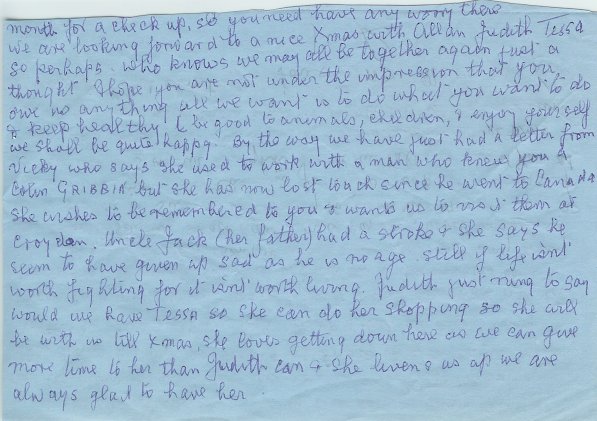 month for a check up, so you need have any worry there
we are looking forward to a nice Xmas with Allan Judith Tessa
so perhaps. who knows we may all be together again just a
thought I hope you are not under the impression that you
owe us anything all we want is to do what you want to do
& keep healthy, & be good to animals, children, & enjoy yourself
we shall be quite happy By the way we have just had a letter from
Vicky who says she used to work with a man who knew you a
Colin GRIBBIN but she has now lost touch since he went to Canada
she wishes to be remembered to you & wants us to visit them at
Croydon. Uncle Jack (her father) had a stroke & she says he
seem to have given up sad as he is no age still if life isn't
worth fighting for it isn't worth living. Judith just rung to say
would we have TESSA so she can do her shopping so she will
be with us till Xmas, she loves getting down here as we can give
more time to her than Judith can & she livens us up we are
always glad to have her.